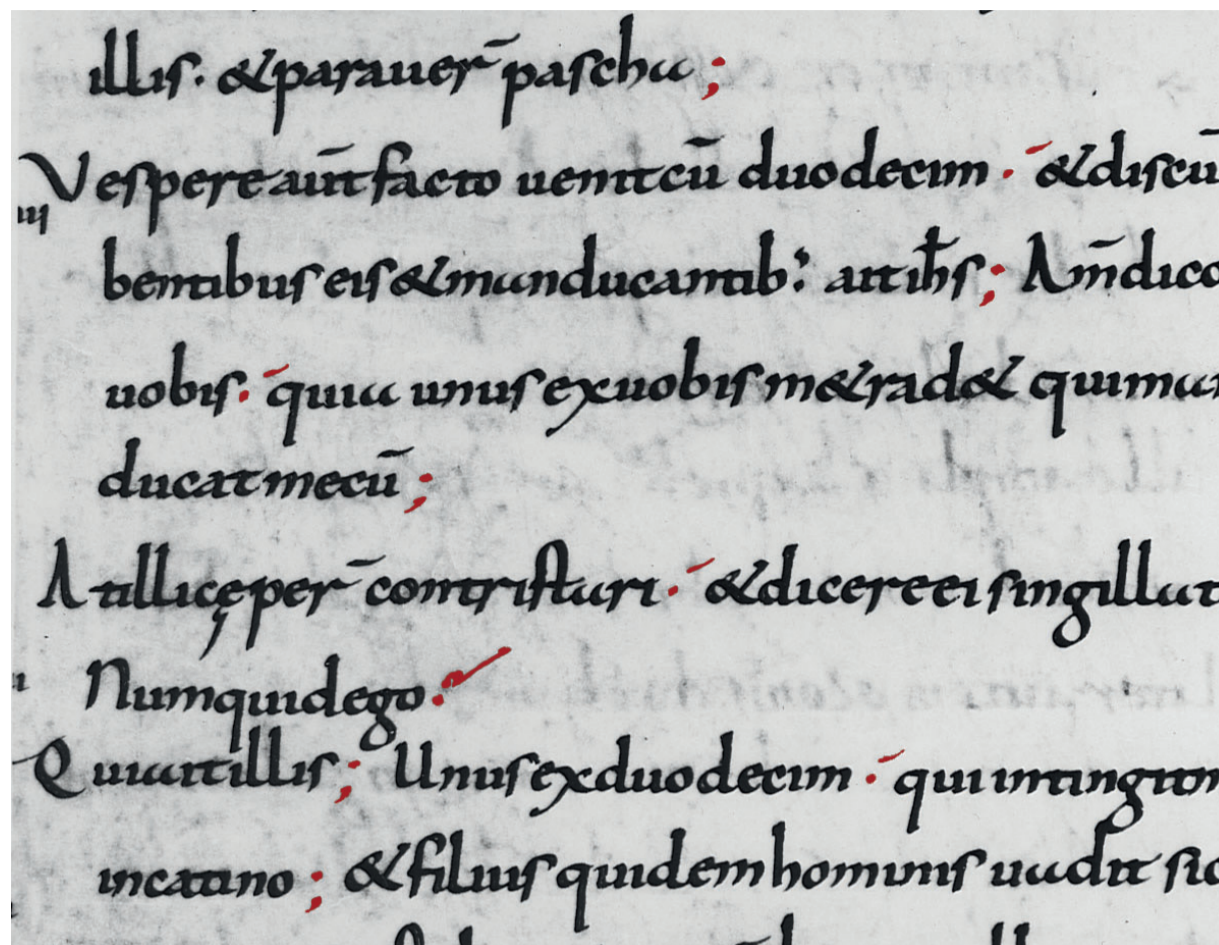 illis. &parauer̄ pascha;
Vespere aūt facto uenit cū duodecim. &discū
iiij
bentibus eis &manducantib: ait ih̄s; Am̄ dico
uobis. quia unus exuobis me tradet quiman
ducat mecū;
At illi cęper̄ contristari. &dicere ei singillat
Numquid ego.
Qui ait illis; Unus exduodecim. qui intingit m
incatino; &filius quidem hominis uadit sic